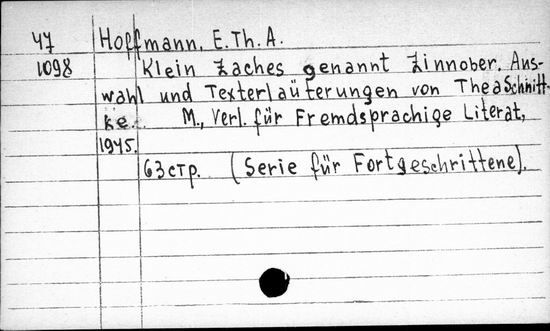 47 Hoffmann, E.Th.A.
1098 Klein Zaches genannt Zinnober. Aus-
wahl und Texterläuterungen von Thea Schnitt-
ke. M., Verl. für Fremdsprachige Literat,
1945.
63 стр. (Serie für Fortgeschrittene).